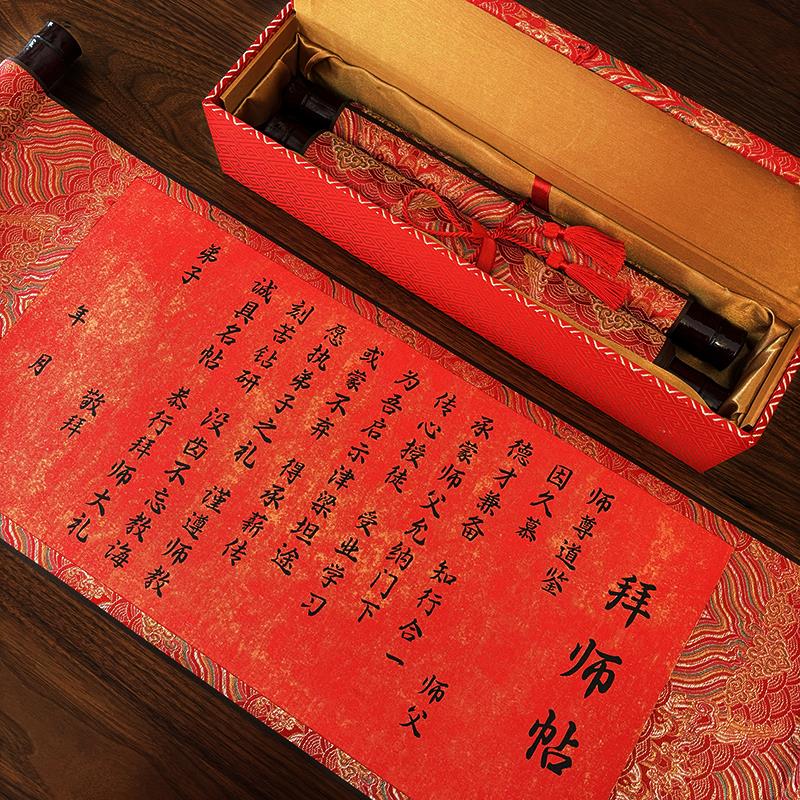 拜师帖
师尊道鉴
因久慕 师父
德才兼备 知行合一
承蒙师父允纳门下
传心授徒 受业学习
为吾启示津梁坦途
或蒙不弃 得承薪传
愿执弟子之礼 谨遵师教
刻苦钻研 没齿不忘教诲
诚具名帖 恭行拜师大礼
弟子 敬拜
年 月